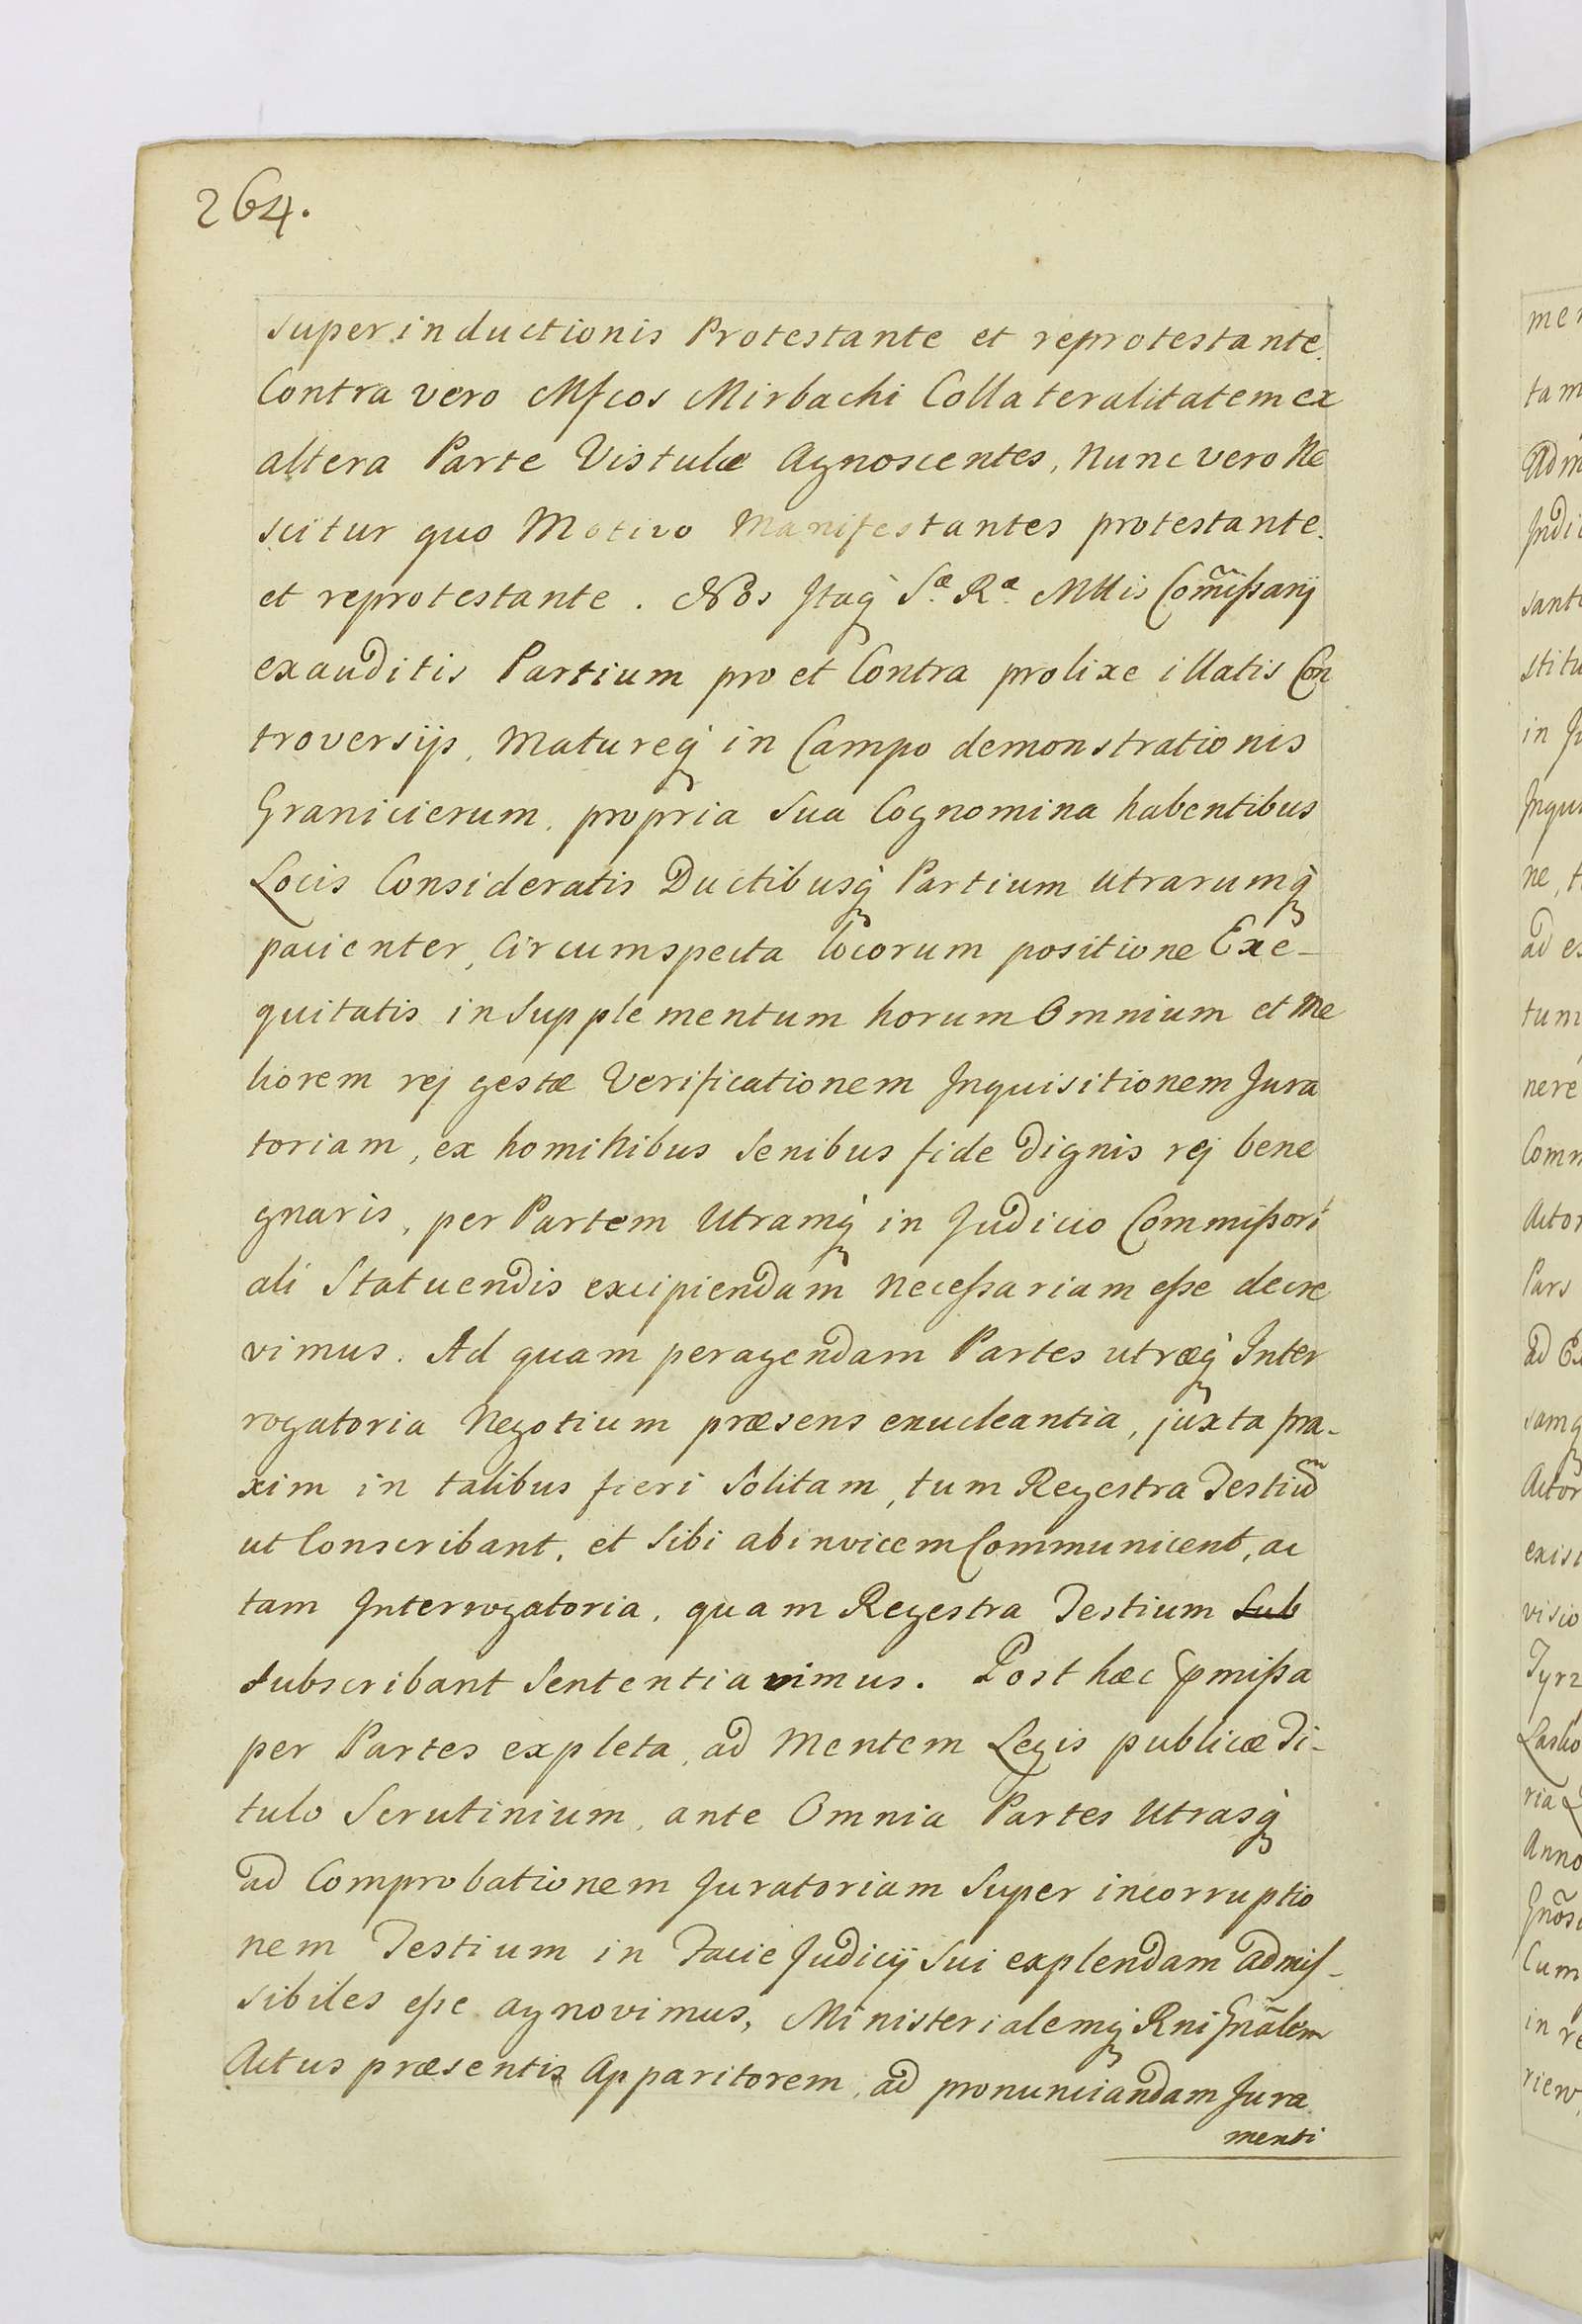 264.
superinductionis Protestante et reprotestante.
Contra vero Mfcos Mirbachi Collateralitatem ex
altera Parte Vistulæ Agnoscentes, Nunc vero Ne
scitur quo Motivo Manifestantes protestante.
et reprotestante. Nos Itaq́ Sæ Ræ Mttis Com̃issarij
exauditis Partium pro et Contra prolixe illatis Con
troversijs, Matureq́ in Campo demonstrationis
Granicierum, propria sua Cognomina habentibus
Locis Consideratis Ductibusq́ Partium utrarumq́
pacienter, Circumspecta locorum positione Exe-
quitatis in Supplementum horum Omnium et Me
liorem rej gestæ Verificationem Inquisitionem Jura
toriam, ex hominibus Senibus fide dignis rej bene
gnaris, per Partem Utramq́ in Judicio Commissori
ali Statuendis excipiendam Necessariam esse decre
vimus. Ad quam peragendam Partes utræq́ Inter
rogatoria Negotium præsens enucleantia, juxta pra-
xim in talibus fieri Solitam, tum Regestra Testium
ut Conscribant, et Sibi abinvicem Communicent, ac
tam Interrogatoria, quam Regestra Testium Sub
subscribant Sententiavimus. Post hæc pmissa
per Partes expleta, ad Mentem Legis publicæ Ti-
tulo Scrutinium, ante Omnia Partes Utrasq́
ad Comprobationem Juratoriam Super incorruptio
nem Testium in Facie Judicij Sui explendam admis-
sibiles esse agnovimus, Ministerialemq́ Rni Gñalem
Actus præsentis Apparitorem, ad pronunciandam Jura
menti
men
tam
Adm
Judi
sant
stitu
in Ju
Inqui
ne, t
ad es
tum
nere
Comm
Actor
Pars
ad Ex
samq
Actor
exist
visio
Tyrz
Lasko
ria
Anno
Gños
Cum
in re
riew,